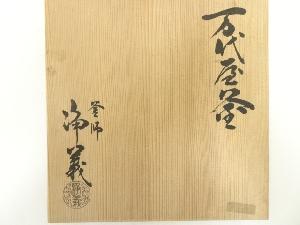 万代屋釜
釜師
浄義